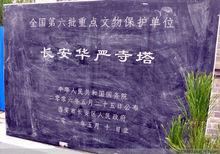 全国第六批重点文物保护单位
长安华严寺塔
中华人民共和国国务院
二零零六年五月二十五日公布
西安市长安区人民政府